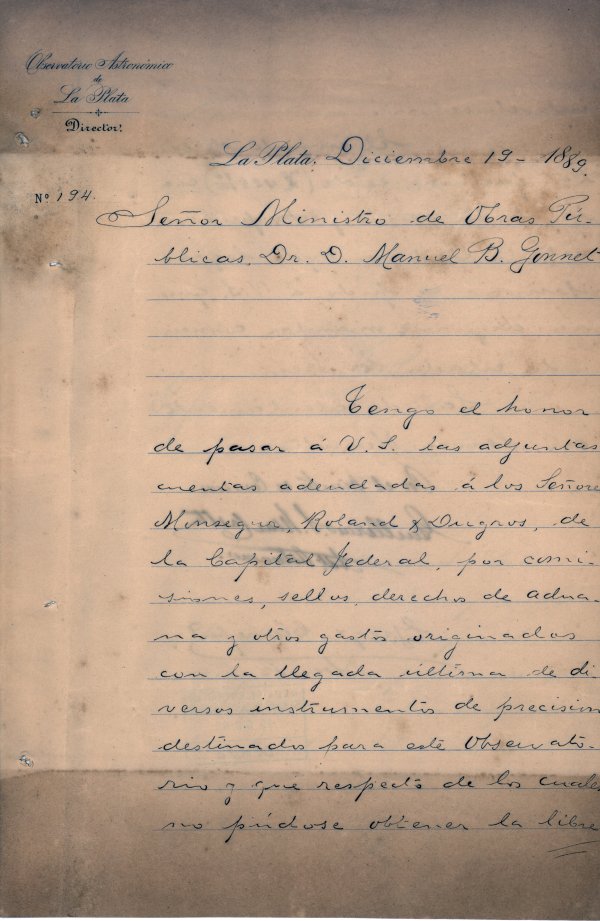 Observatorio Astronómico
de
La Plata
Director.
La Plata, Diciembre 19 - 1889.
Nº 194.
Señor Ministro de Obras Pú-
blicas, Dr. D. Manuel B. Gonnet
Tengo el honor
de pasar á V. S. las adjuntas
cuentas adeudadas á los Señore
Monsegur, Roland & Dugros, de
la Capital Federal, por comi-
siones, sellos, derechos de adua-
na y otros gastos originados
con la llegada última de di-
versos instrumentos de precision
destinados para este Observato-
rio y que respecto de los cuales
no púdose obtener la libre